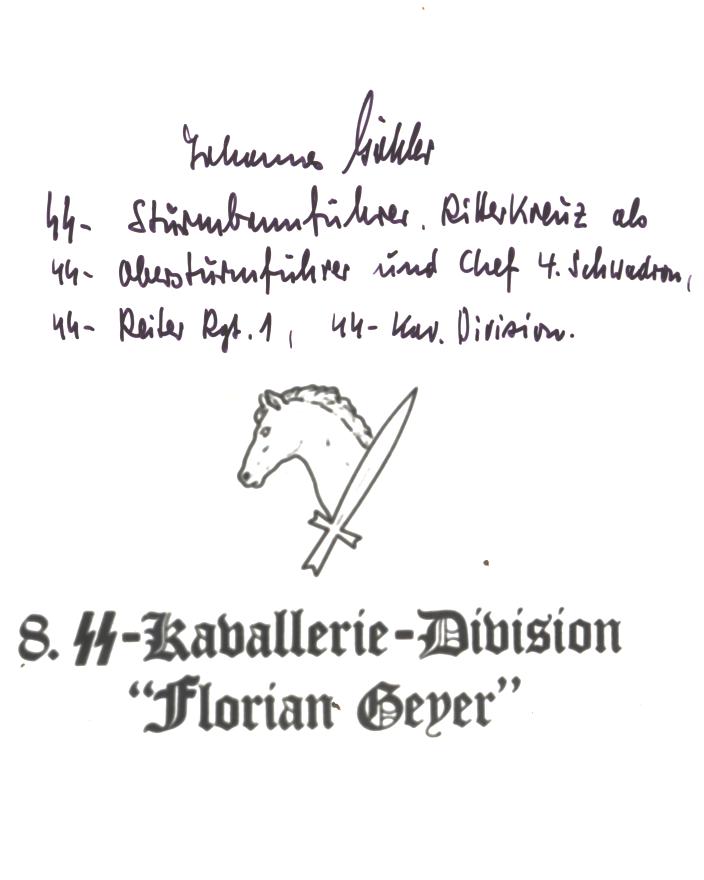 Johannes Göhler
SS- Sturmbannführer. Ritterkreuz als
SS- Obersturmführer und Chef 4. Schwadron,
SS- Reiter Rgt. 1, SS- Kav. Division.
8. SS-Kavallerie-Division
“Florian Geyer”